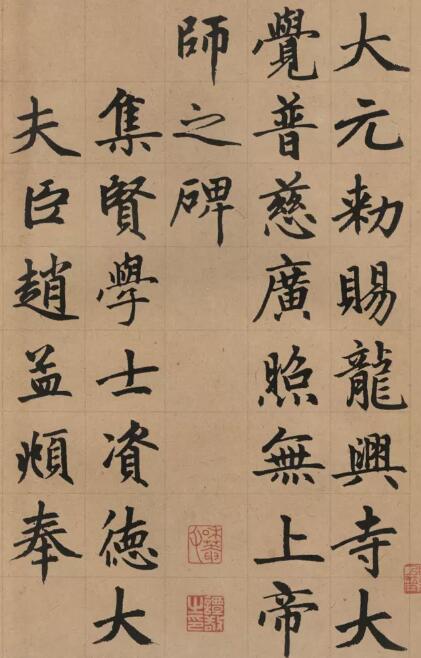 大元勅賜龍興寺大
覺普慈廣照無上帝
師之碑
集賢學士資德大
夫臣趙孟頫奉